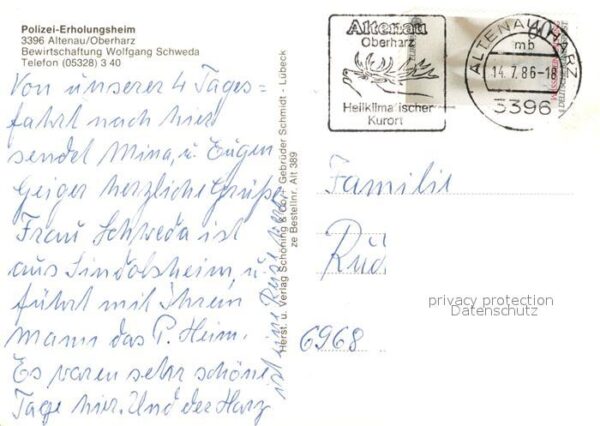 Polizei-Erholungsheim
3396 Altenau/Oberharz
Bewirtschaftung Wolfgang Schweda
Telefon (05328) 3 40
Von unserer 4 Tages=
fahrt nach hier
sendet Mina, u. Eugen
Geiger herzliche Grüße
Frau Schweda ist
aus Sindolsheim, u.
führt mit Ihrem
Mann das P. Heim.
Es waren sehr schöne
Tage hier. Und der Harz
ist eine Reise wert.
Herst. u. Verlag Schöning & Co. + Gebrüder Schmidt - Lübeck
ze Bestellnr. Alt 389
Altenau
Oberharz
Heilklimatischer
Kurort
ALTENAU, HARZ
mb
14.7.86-18
3396
Familie
Rüd
privacy protection
Datenschutz
6968